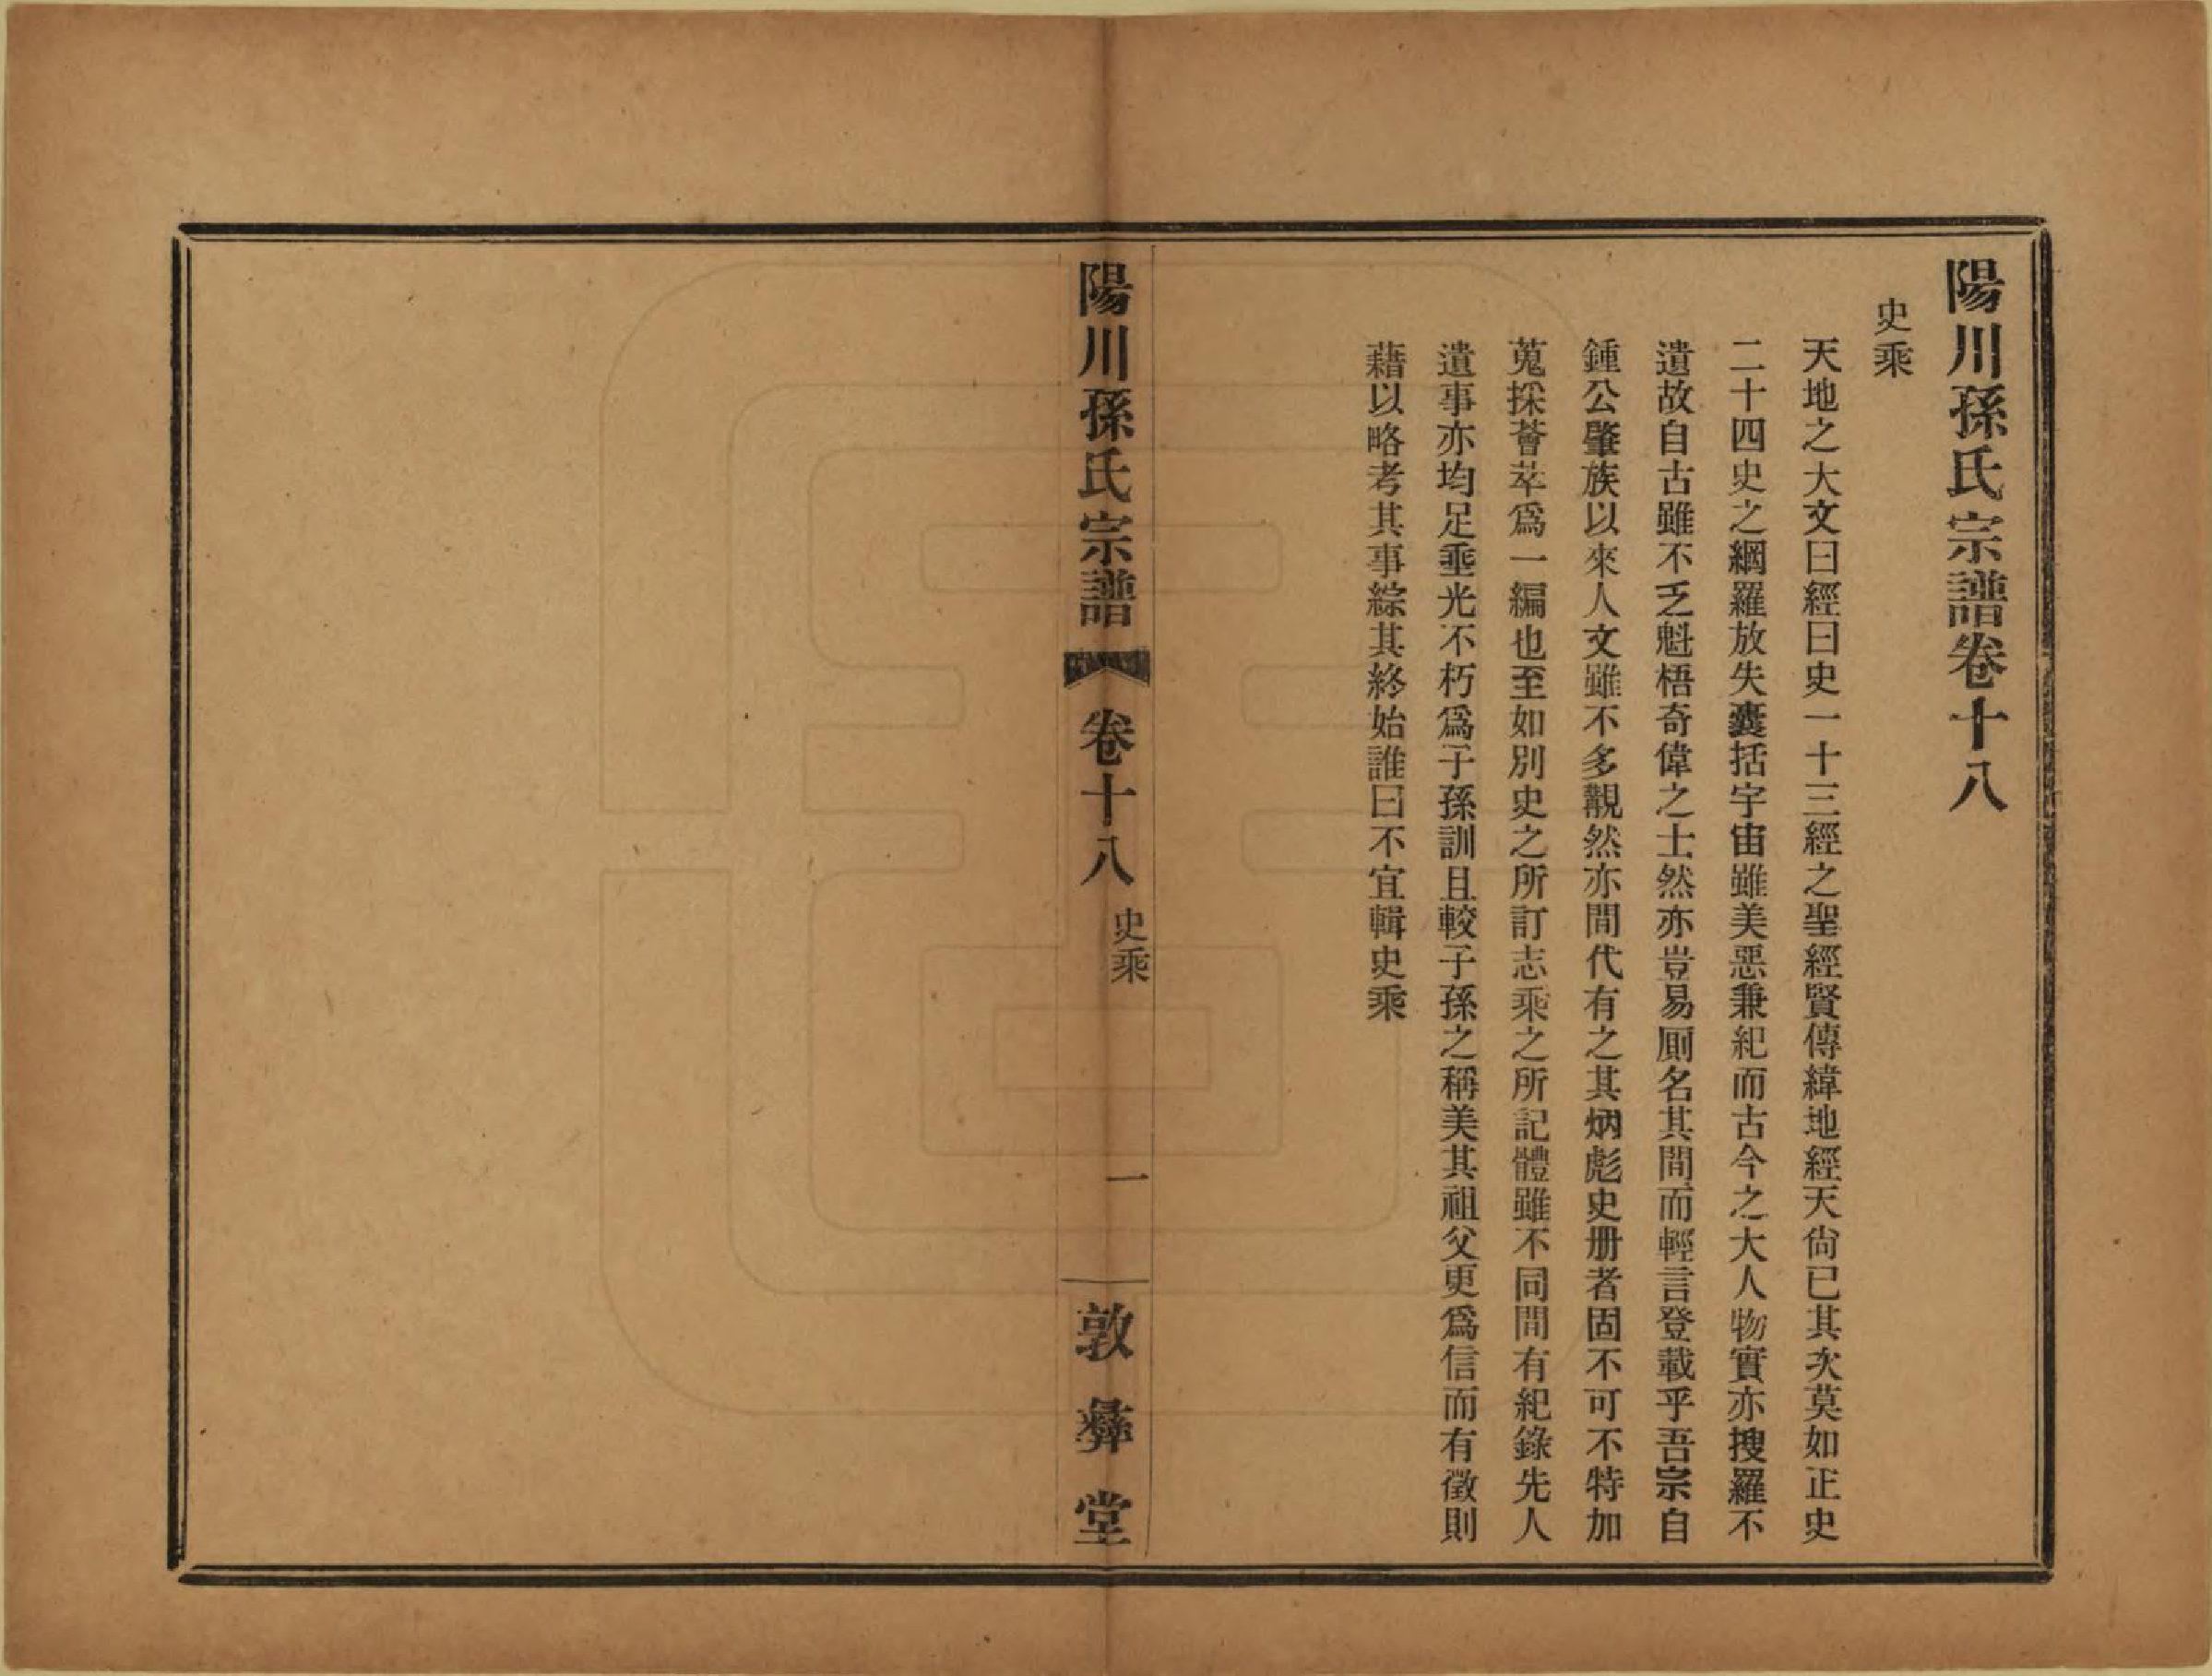 陽川孫氏宗譜卷十八
史乘
天地之大文曰經曰史一十三經之聖經賢傳緯地經天尙已其次莫如正史
二十四史之綱羅放失囊括宇宙雖美惡兼紀而古今之大人物實亦搜羅不
遺故自古雖不乏魁梧奇偉之士然亦豈易厠名其間而輕言登載乎吾宗自
鍾公肇族以來人文雖不多觀然亦間代有之其炳彪史册者固不可不特加
蒐採薈萃爲一編也至如別史之所訂志乘之所記體雖不同間有紀錄先人
遺事亦均足垂光不朽爲子孫訓且較子孫之稱美其祖父更爲信而有徵則
藉以略考其事綜其終始誰曰不宜輯史乘
陽川孫氏宗譜 卷十八 史乘 一 敦彝堂